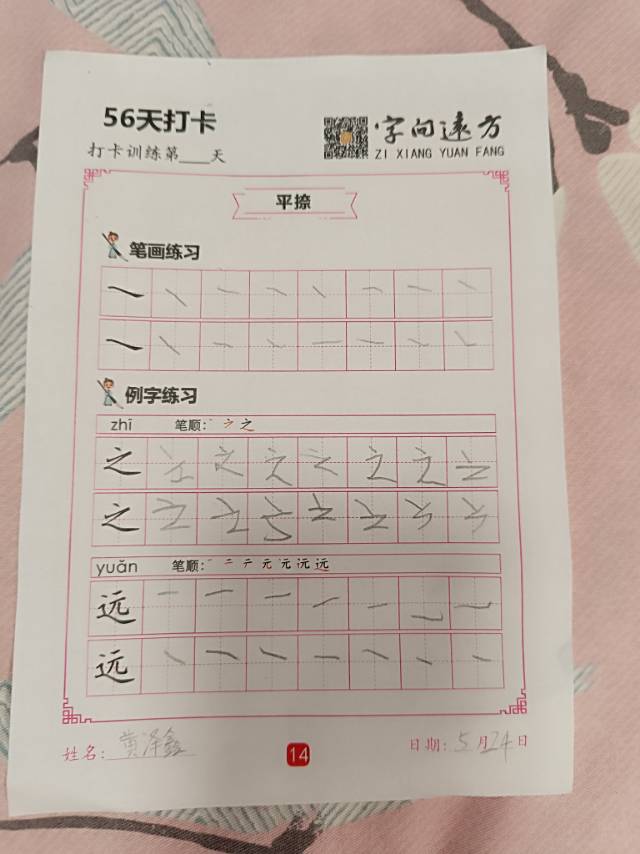 56天打卡
打卡训练第___天
字向遠方
ZI XIANG YUAN FANG
平捺
笔画练习
例字练习
zhī 笔顺: 丶 ㇇ 之
之 之 之 之 之 之 之 之
之 之 之 之 之 之 之 之
yuǎn 笔顺: 一 二 テ 元 沅 远
远
远
姓名: 黄泽鑫
14
日期: 5月24日